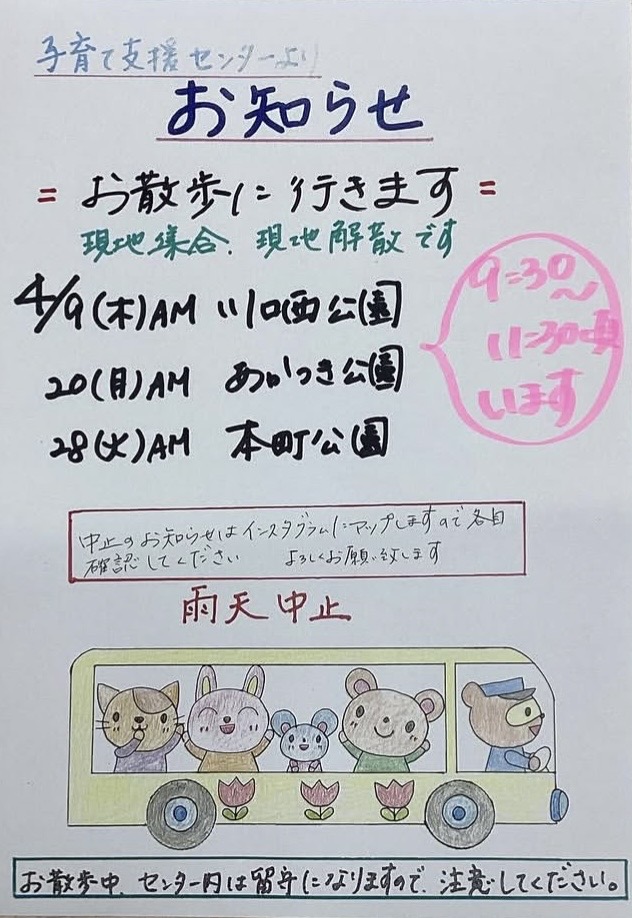 子育て支援センターより
お知らせ
= お散歩に行きます =
現地集合、現地解散です
4/9(木)AM 川口西公園
20(月)AM あかつき公園
28(火)AM 本町公園
9:30〜
11:30頃
います
中止のお知らせはインスタグラムにアップしますので各自
確認してください よろしくお願い致します
雨天中止
お散歩中、センター内は留守になりますので、注意してください。